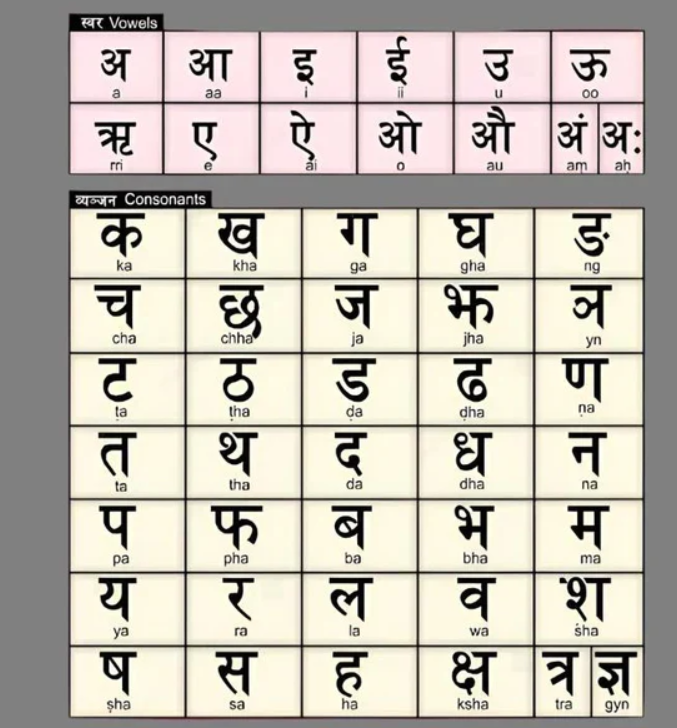 स्वर Vowels
अ आ इ ई उ ऊ
a aa i ii u oo
ऋ ए ऐ ओ औ अं अः
rri e ai o au aṃ aḥ
व्यञ्जन Consonants
क ख ग घ ङ
ka kha ga gha ng
च छ ज झ ञ
cha chha ja jha yn
ट ठ ड ढ ण
ṭa ṭha ḍa ḍha ṇa
त थ द ध न
ta tha da dha na
प फ ब भ म
pa pha ba bha ma
य र ल व श
ya ra la wa śha
ष स ह क्ष त्र ज्ञ
ṣha sa ha ksha tra gyn